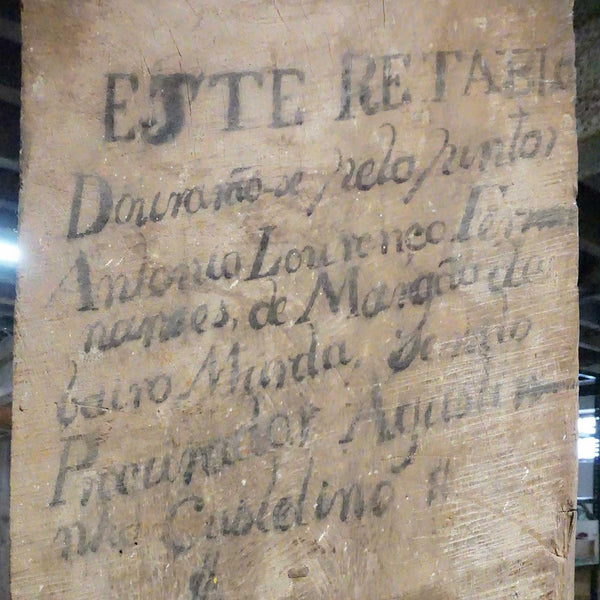 ESTE RETABLO
Dourarão-se pelo Puntor
Antonio Lourenço Fer
nandes, de Margão do
bairo Murda, Sendo
Procurador Agusti
nho Custelino //
//